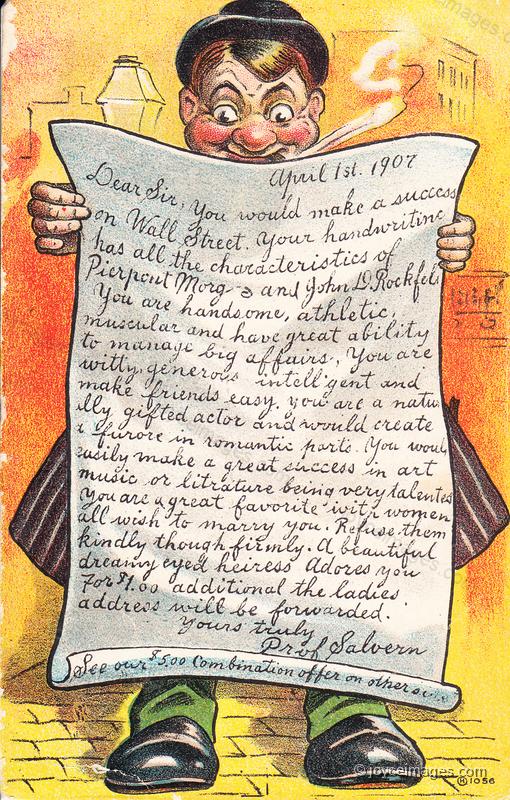 April 1st. 1907
Dear Sir, You would make a success
on Wall Street. Your handwriting
has all the characteristics of
Pierpont Morg and John D. Rockfel
You are handsome, athletic,
muscular and have great ability
to manage big affairs, You are
witty, generous intelligent and
make friends easy. you are a natu
lly gifted actor and would create
a furore in romantic parts. You would
easily make a great success in art
music or litrature being very talented
You are a great favorite with women
all wish to marry you. Refuse them
kindly though firmly. A beautiful
dreamy eyed heiress Adores you
For $1.00 additional the ladies'
address will be forwarded.
Yours truly
Prof Salvern
See our $5.00 Combination offer on other si...
1056
©joyceimages.com